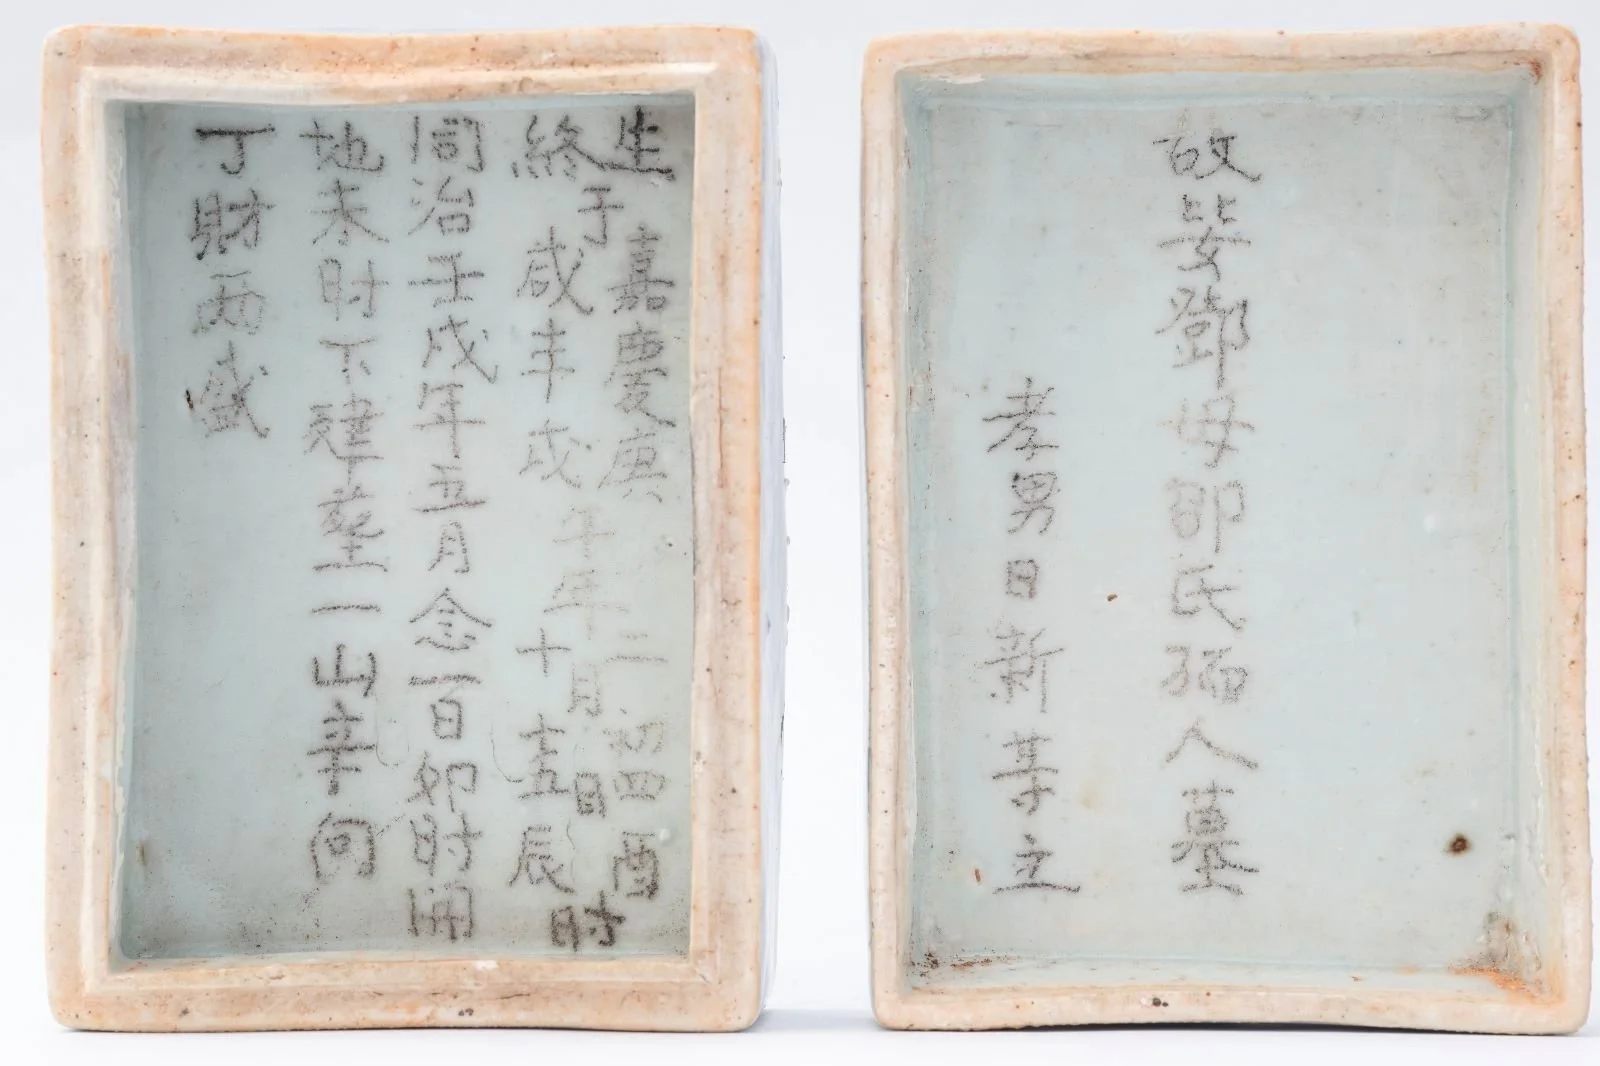 故妣鄧母邵氏孺人墓
孝男日新等立
生嘉慶庚二初四酉
于午年月日時
終咸丰戊十十五辰
同治壬戌年五月念一日卯時開
地未时下建塟一山辛向
丁財两盛